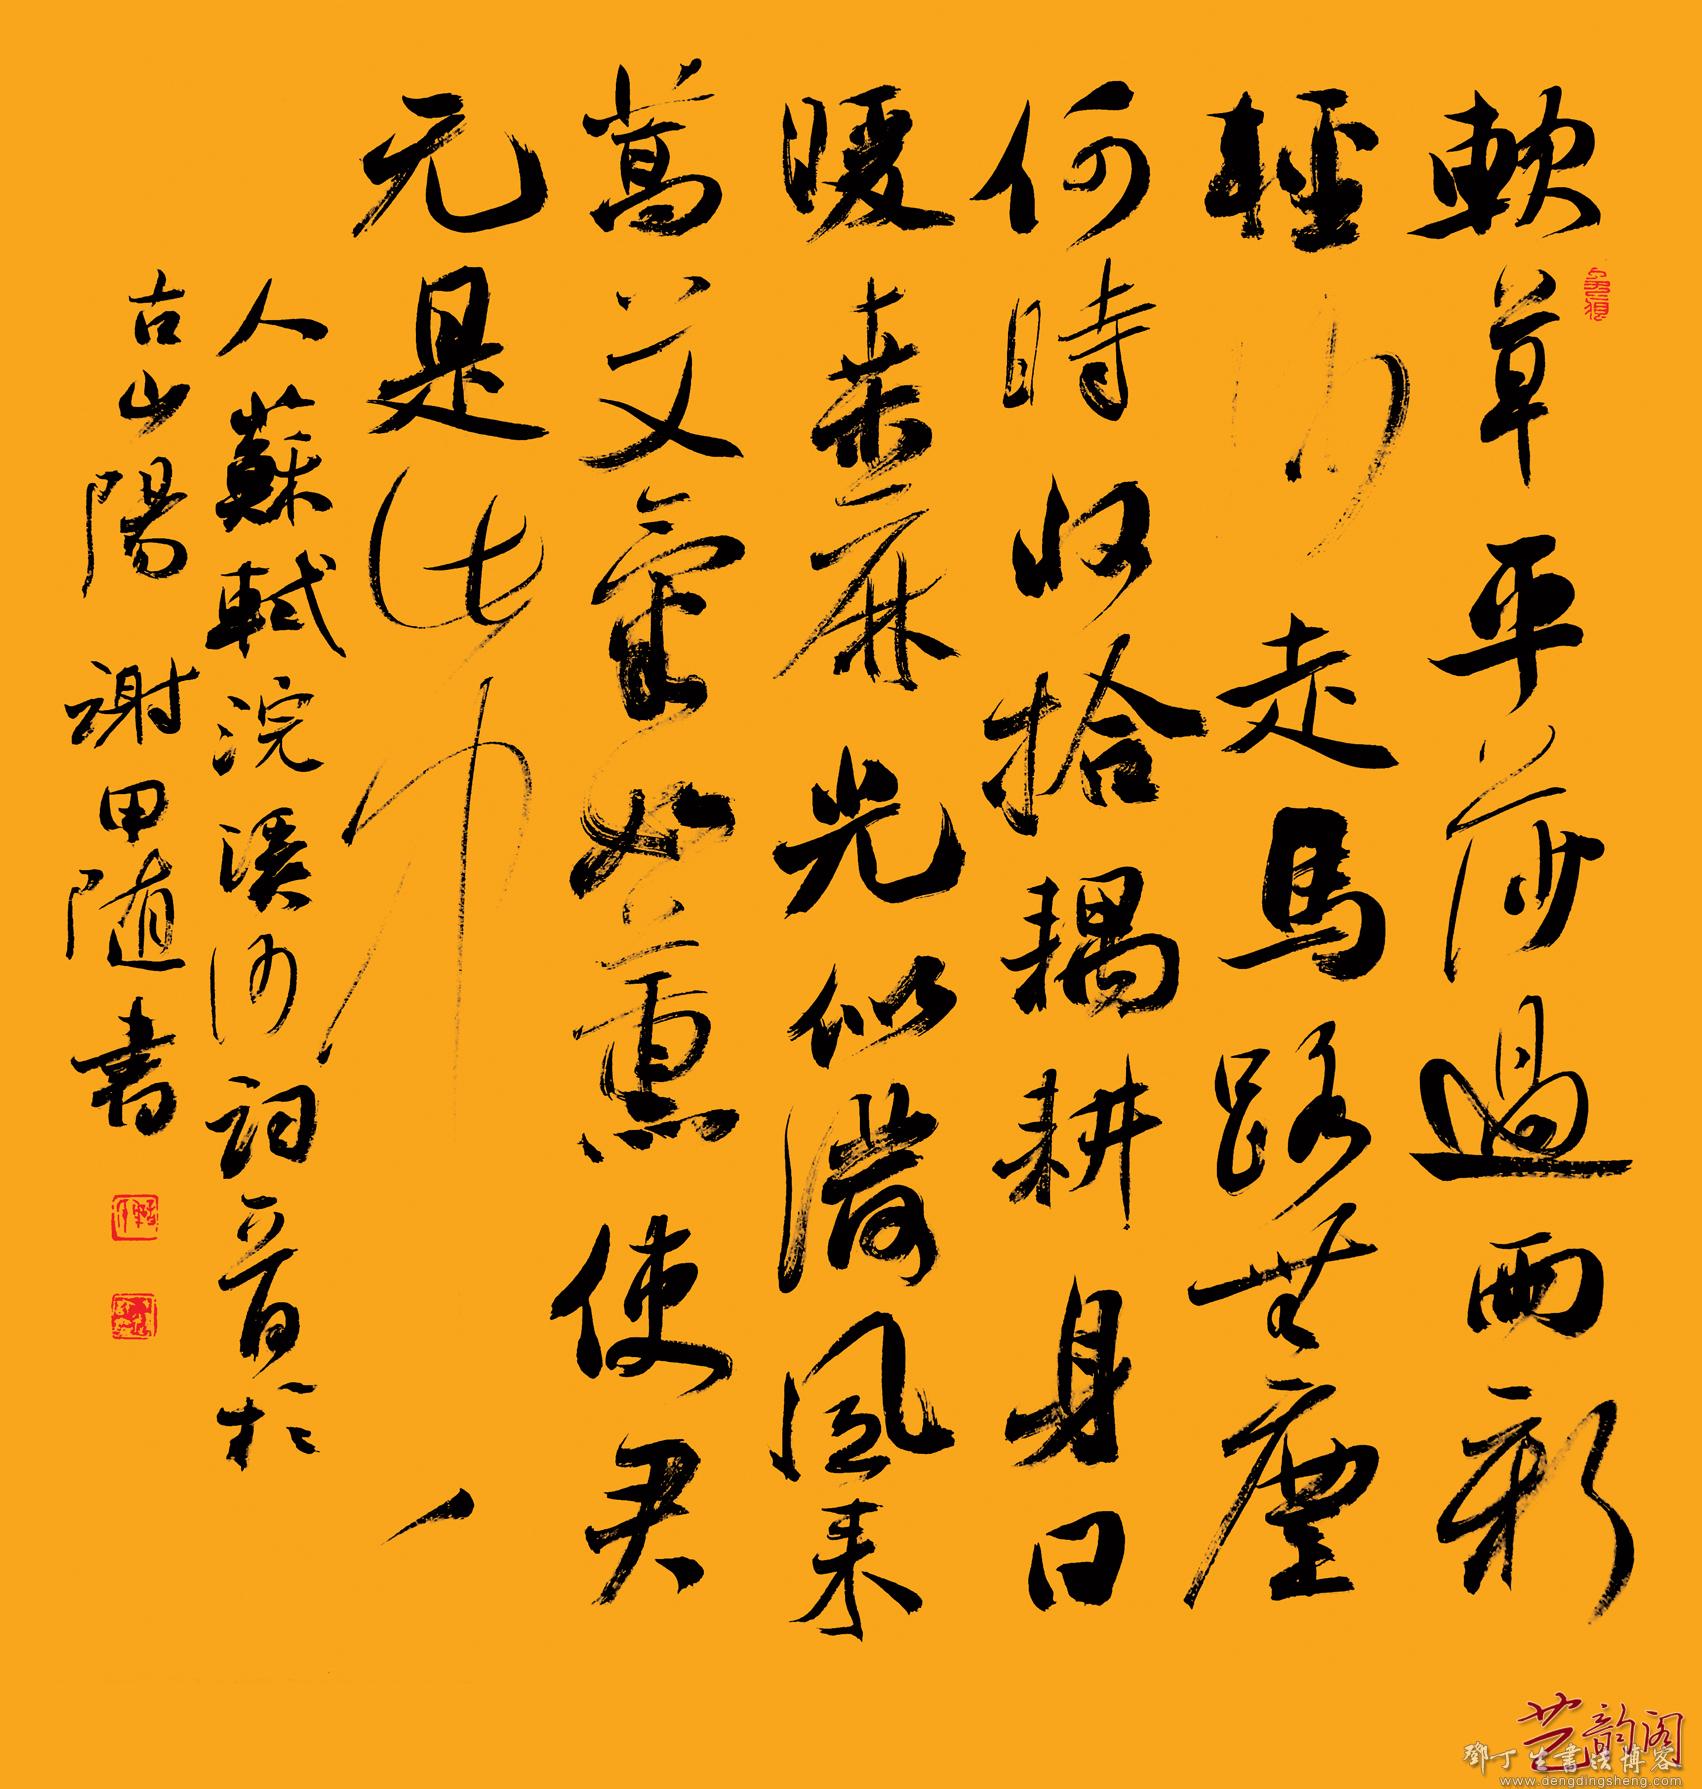 軟草平莎過雨新
輕沙走馬路無塵
何時收拾耦耕身日
暖桑麻光似潑風来
蒿艾氣如薰使君
元是此中
人蘇軾浣溪沙詞一首於
古山陽謝甲随書
艺韵阁
鄧丁生書法博客
www.dengdingsheng.com